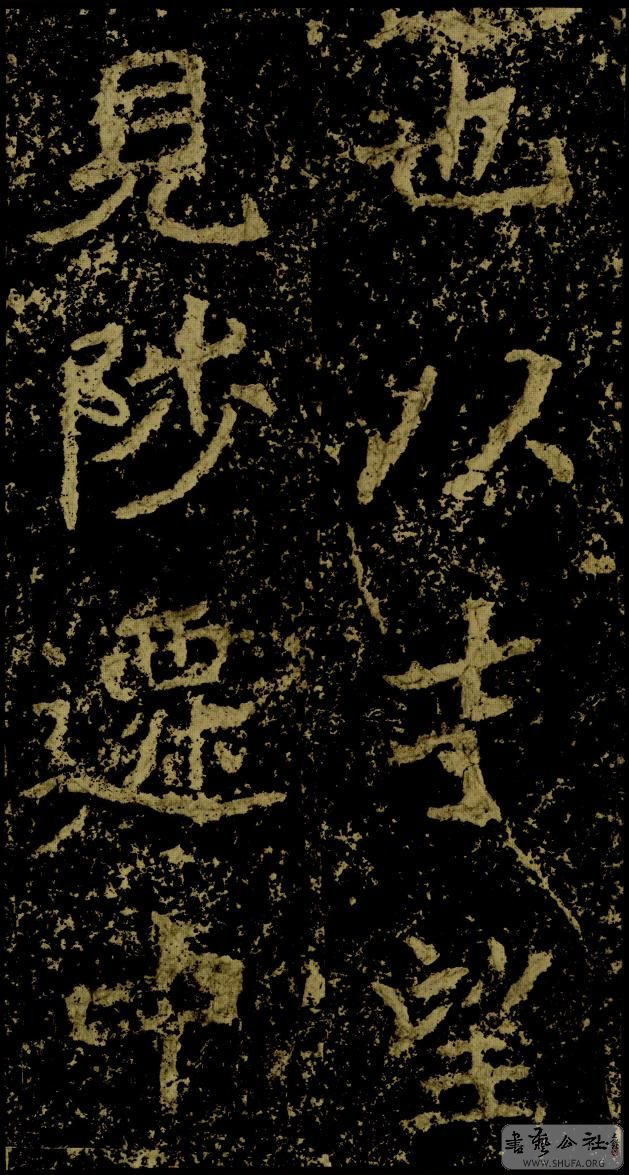 也以望
見陟遷中
書藝公社
WWW.SHUFA.ORG